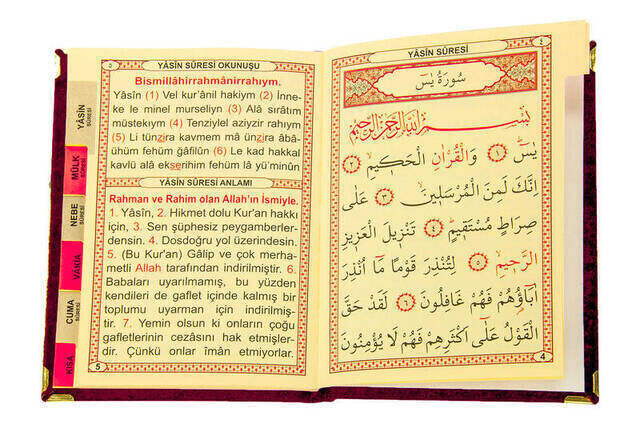 YÂSİN SÛRESİ
٤
سُورَةُ يٰسٓ
بِسْمِ اللّٰهِ الرَّحْمٰنِ الرَّحِيمِ
يٰسٓ ﴿١﴾ وَالْقُرْاٰنِ الْحَكِيمِ ﴿٢﴾
اِنَّكَ لَمِنَ الْمُرْسَلِينَ ﴿٣﴾ عَلٰى
صِرَاطٍ مُسْتَقِيمٍ ﴿٤﴾ تَنْزِيلَ الْعَزِيزِ
الرَّحِيمِ ﴿٥﴾ لِتُنْذِرَ قَوْمًا مَٓا اُنْذِرَ
اٰبَٓاؤُهُمْ فَهُمْ غَافِلُونَ ﴿٦﴾ لَقَدْ حَقَّ
الْقَوْلُ عَلٰٓى اَكْثَرِهِمْ فَهُمْ لَا يُؤْمِنُونَ
4
YÂSİN SÛRESİ OKUNUŞU
٥
Bismillâhirrahmânirrahıym.
Yâsîn (1) Vel kur'ânil hakiym (2) İnne-
ke le minel murseliyn (3) Alâ sırâtım
müstekıym (4) Tenziylel aziyzir rahıym
(5) Li tünzira kavmem mâ ünzira âbâ-
ühüm fehüm ğâfilûn (6) Le kad hakkal
kavlü alâ ekserihim fehüm lâ yü'minûn
YÂSİN SÛRESİ ANLAMI
Rahman ve Rahim olan Allah'ın İsmiyle.
1. Yâsîn, 2. Hikmet dolu Kur'an hakkı
için, 3. Sen şüphesiz peygamberler-
densin. 4. Dosdoğru yol üzerindesin.
5. (Bu Kur'an) Gâlip ve çok merha-
metli Allah tarafından indirilmiştir. 6.
Babaları uyarılmamış, bu yüzden
kendileri de gaflet içinde kalmış bir
toplumu uyarman için indirilmiş-
tir. 7. Yemin olsun ki onların çoğu
gafletlerinin cezâsını hak etmişler-
dir. Çünkü onlar îmân etmiyorlar.
5
YÂSİN
SÛRESİ
MÜLK
SÛRESİ
NEBE
SÛRESİ
VÂKIA
CUMA
SÛRESİ
KISA